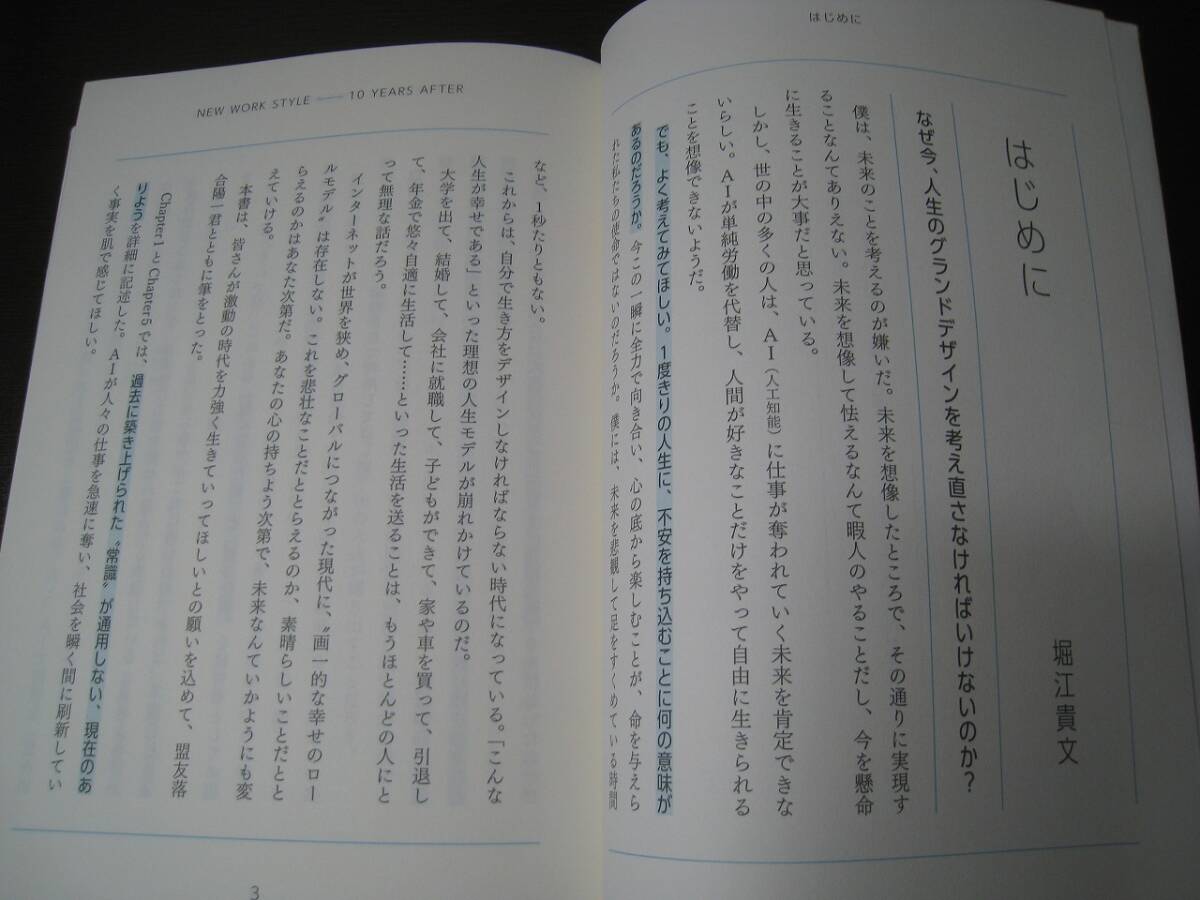 はじめに
はじめに
堀江貴文
なぜ今、人生のグランドデザインを考え直さなければいけないのか？
僕は、未来のことを考えるのが嫌いだ。未来を想像したところで、その通りに実現す
ることなんてありえない。未来を想像して怯えるなんて暇人のやることだし、今を懸命
に生きることが大事だと思っている。
しかし、世の中の多くの人は、AI（人工知能）に仕事が奪われていく未来を肯定できな
いらしい。AIが単純労働を代替し、人間が好きなことだけをやって自由に生きられる
ことを想像できないようだ。
でも、よく考えてみてほしい。1度きりの人生に、不安を持ち込むことに何の意味が
あるのだろうか。今この一瞬に全力で向き合い、心の底から楽しむことが、命を与えら
れた私たちの使命ではないのだろうか。僕には、未来を悲観して足をすくめている時間
NEW WORK STYLE —— 10 YEARS AFTER
など、1秒たりともない。
これからは、自分で生き方をデザインしなければならない時代になっている。「こんな
人生が幸せである」といった理想の人生モデルが崩れかけているのだ。
大学を出て、結婚して、会社に就職して、子どもができて、家や車を買って、引退し
て、年金で悠々自適に生活して……といった生活を送ることは、もうほとんどの人にと
って無理な話だろう。
インターネットが世界を狭め、グローバルにつながった現代に、〝画一的な幸せのロー
ルモデル〟は存在しない。これを悲壮なことだととらえるのか、素晴らしいことだとと
らえるのかはあなた次第だ。あなたの心の持ちよう次第で、未来なんていかようにも変
えていける。
本書は、皆さんが激動の時代を力強く生きていってほしいとの願いを込めて、盟友落
合陽一君とともに筆をとった。
Chapter1とChapter5では、過去に築き上げられた〝常識〟が通用しない、現在のあ
りようを詳細に記述した。AIが人々の仕事を急速に奪い、社会を瞬く間に刷新してい
く事実を肌で感じてほしい。
3